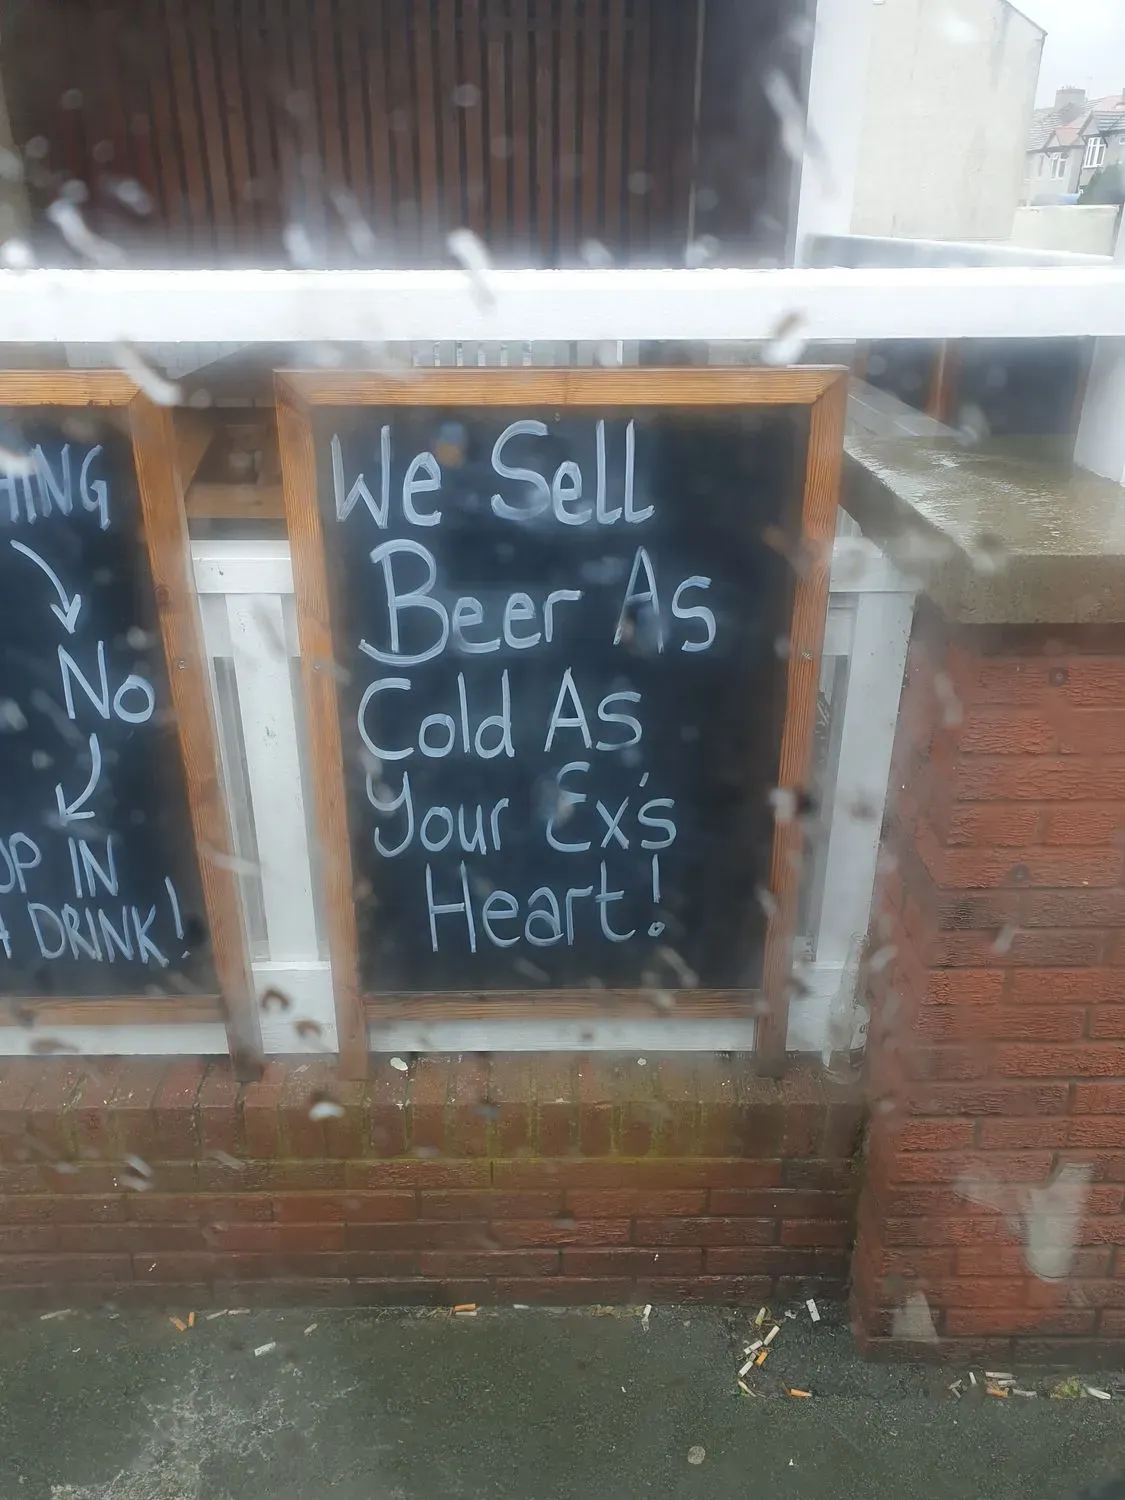 No
IN
DRINK!
We Sell
Beer As
Cold As
Your Ex's
Heart!